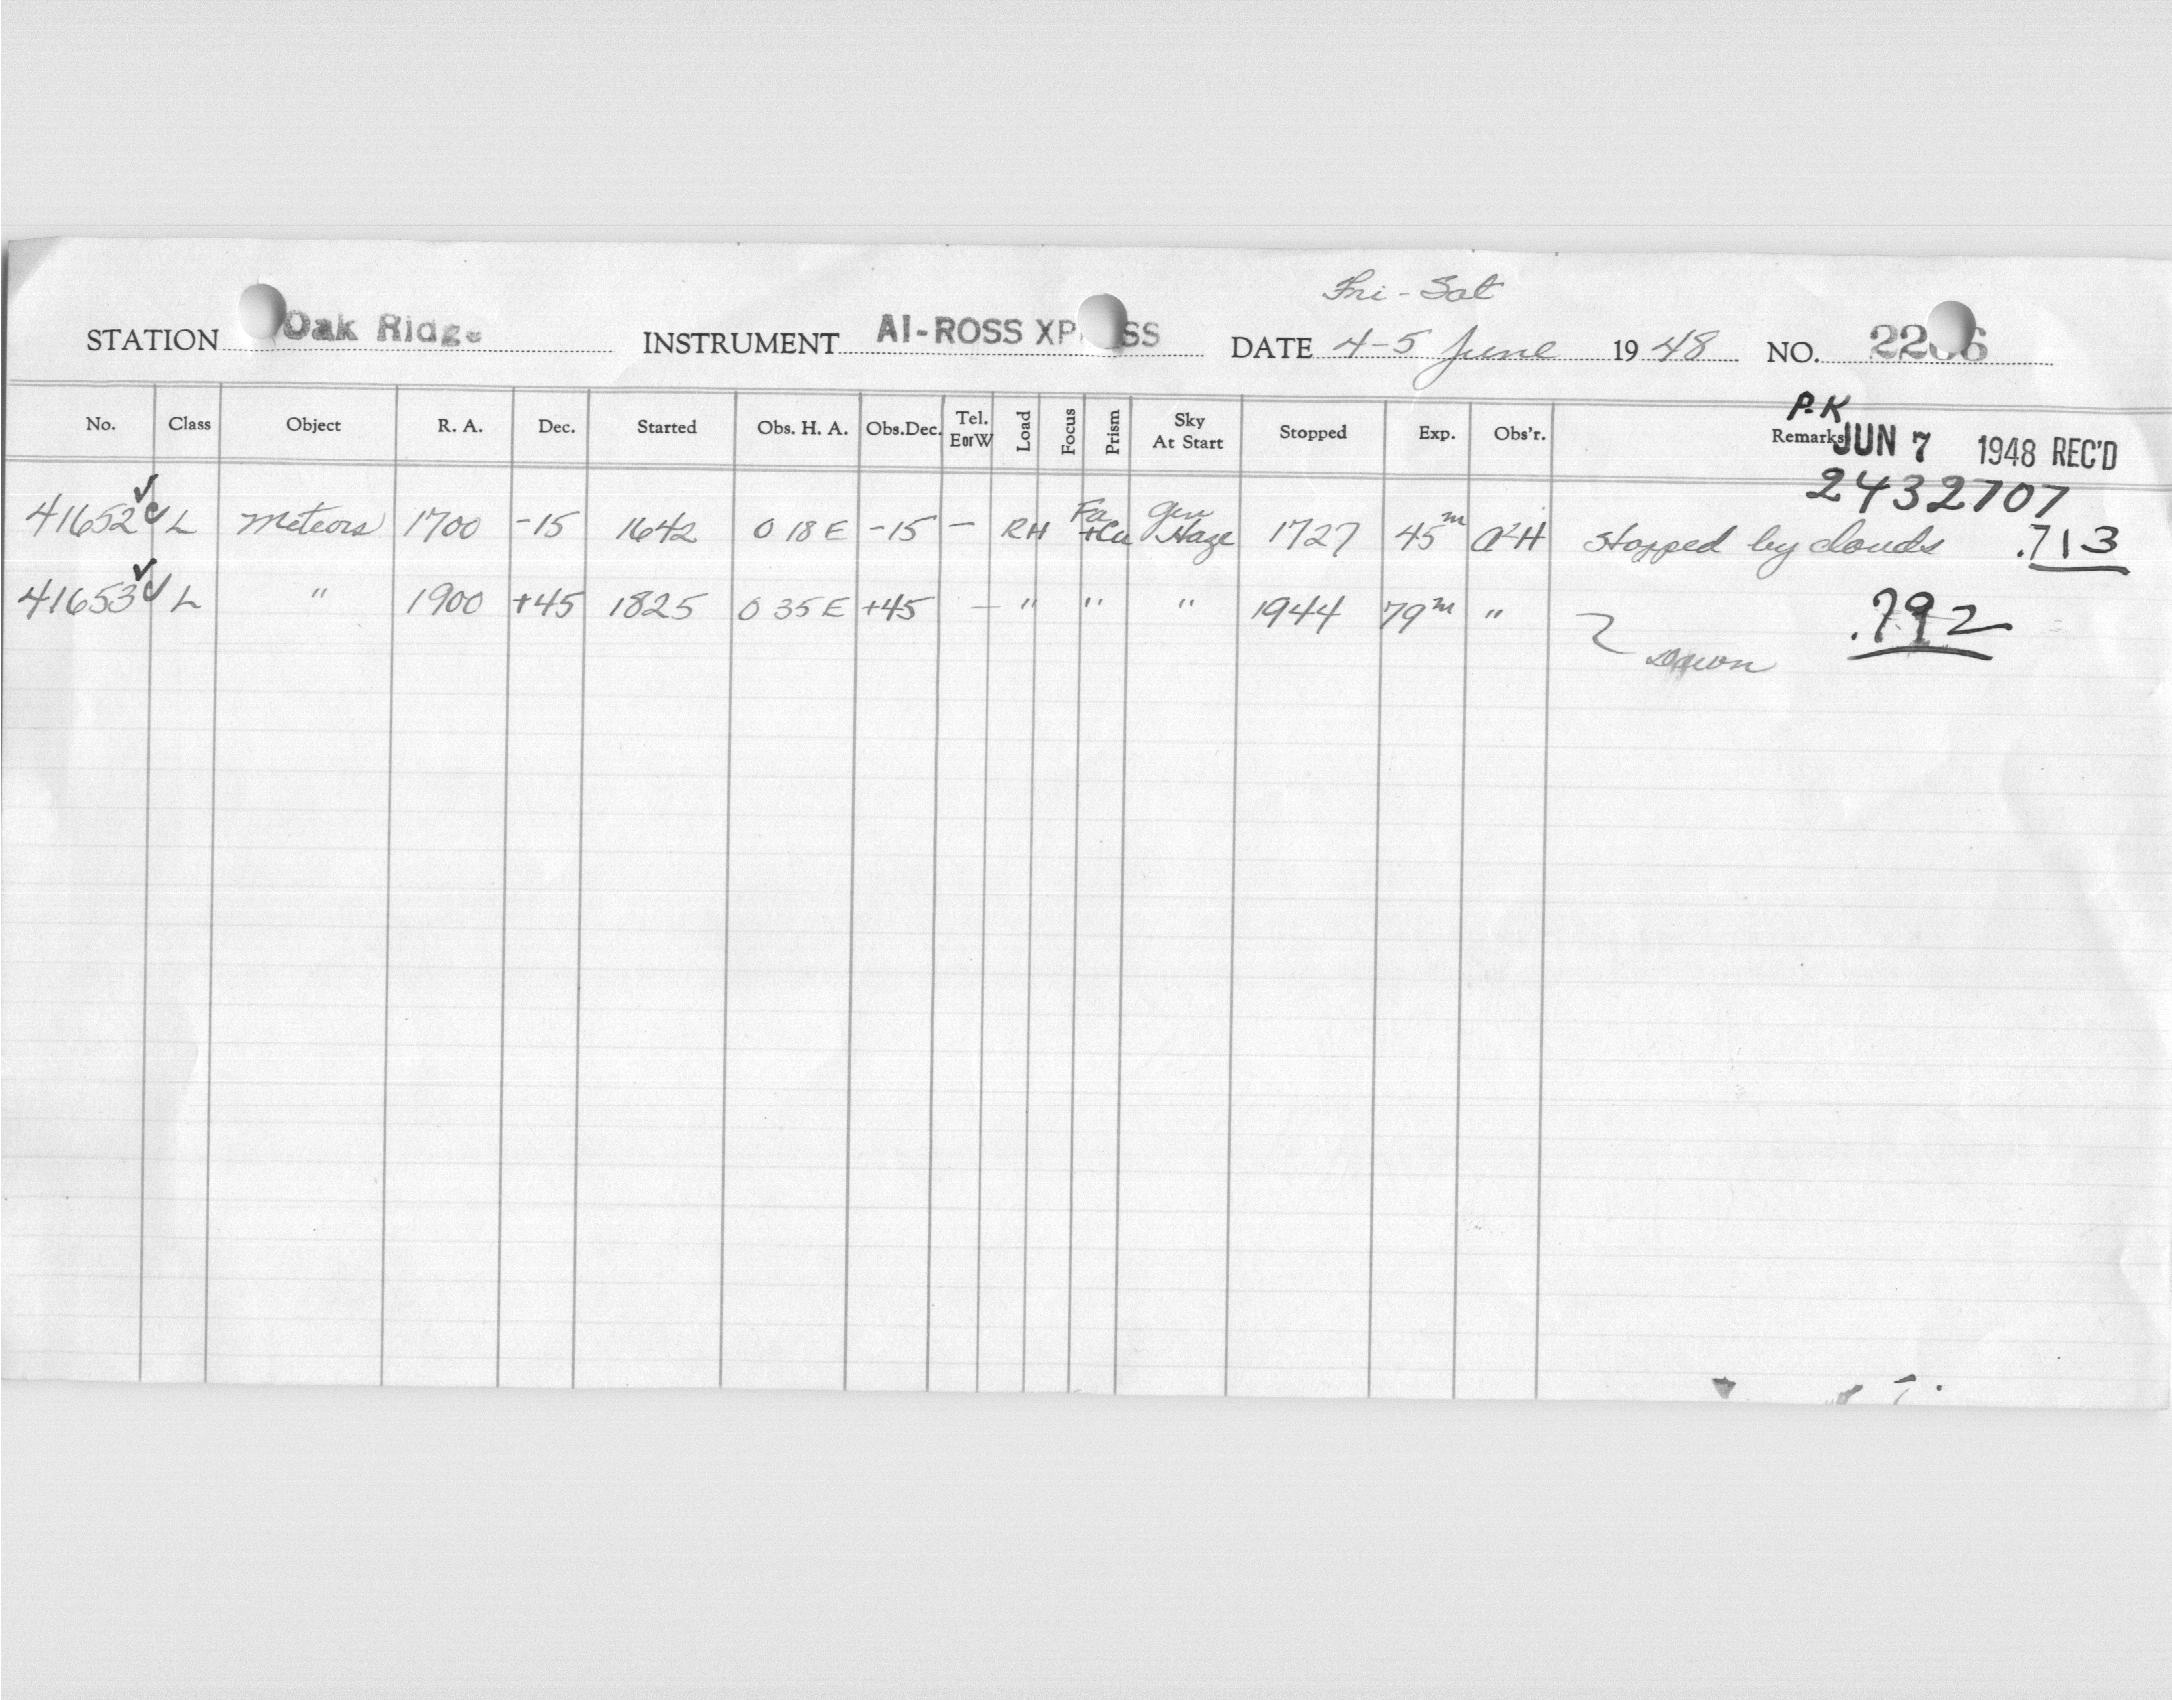 Fri - Sat
STATION Oak Ridge INSTRUMENT AI-ROSS XP SS DATE 4-5 June 1948 NO. 22 6
No. Class Object R. A. Dec. Started Obs. H. A. Obs.Dec. Tel. E or W Load Focus Prism Sky At Start Stopped Exp. Obs'r. Remarks
P.K
JUN 7 1948 REC'D
2432707
41652 ✓ L Meteors 1700 -15 1642 0 18 E -15 — RH Haze 1727 45m stopped by clouds .713
41653 ✓ L " 1900 +45 1825 0 35 E +45 — " " " 1944 79m " .792
Dawn